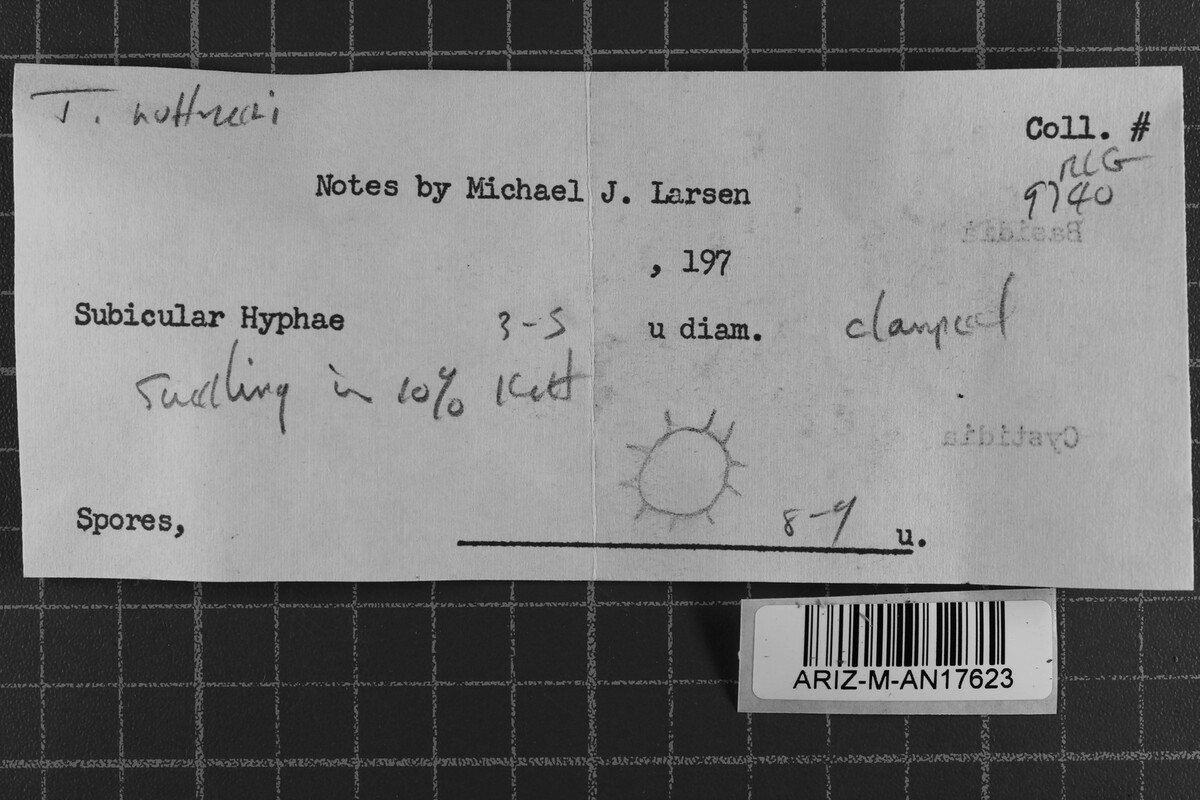 T.
Coll. #
RLG
9740
Notes by Michael J. Larsen
Basidia
, 197
Subicular Hyphae 3-5 u diam. clamped
Swelling in 10% KOH
Cystidia
Spores, 8-9 u.
ARIZ-M-AN17623